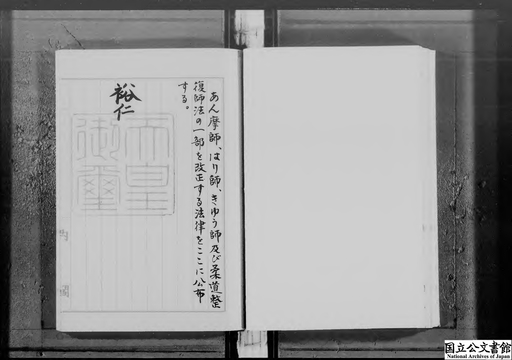 あん摩師、はり師、きゆう師及び柔道整
復師法の一部を改正する法律をここに公布
する。
裕仁
天皇
御璽
内閣
国立公文書館
National Archives of Japan